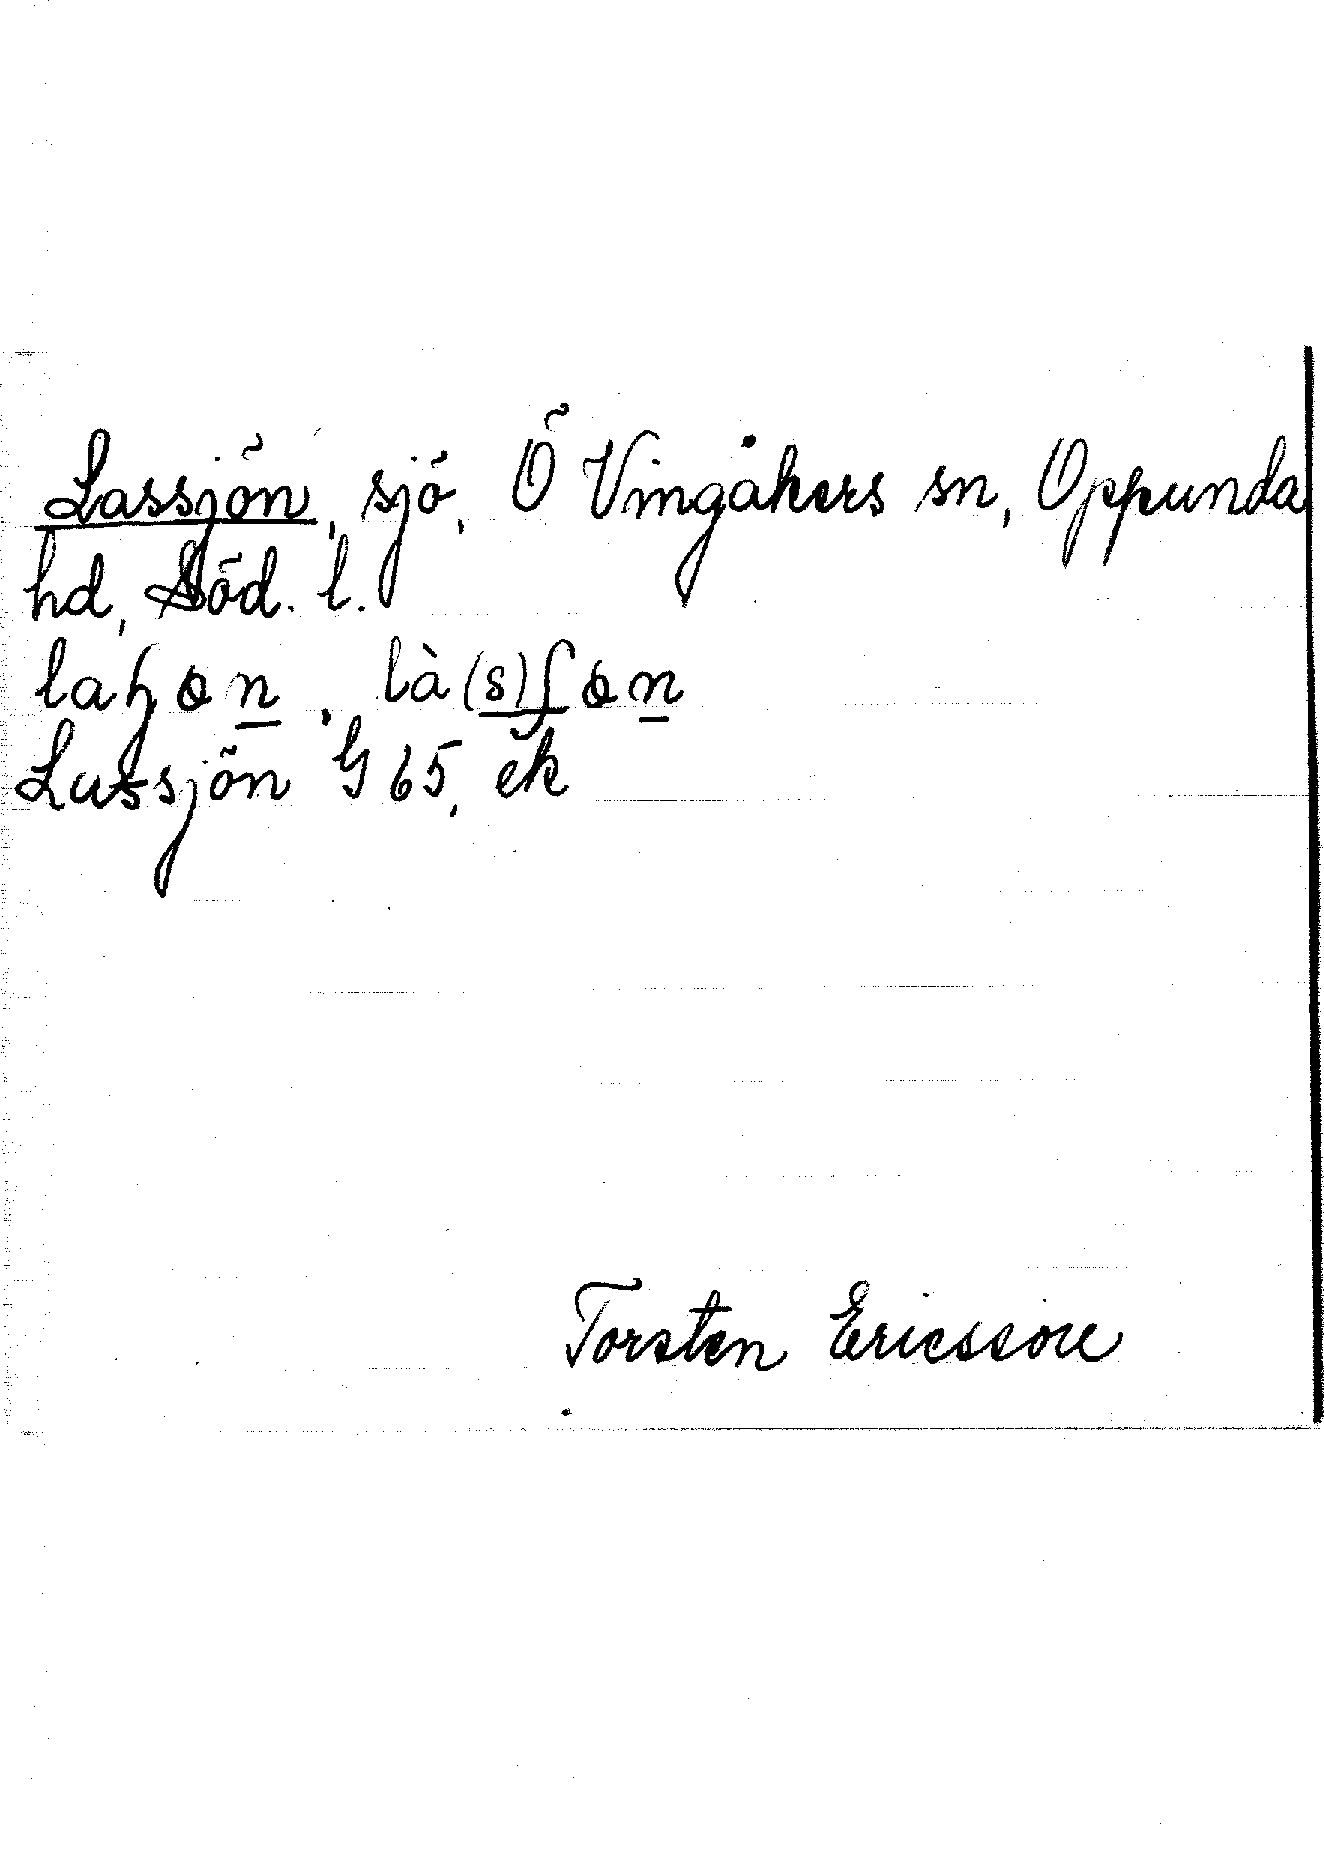 Lassjön, sjö, Ö Vingåkers sn, Oppunda
hd, Söd. l.
là(s)ʃɵn
Lussjön G 65, ek
Torsten Ericsson